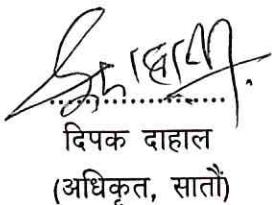 ..................
दिपक दाहाल
(अधिकृत, सातौं)